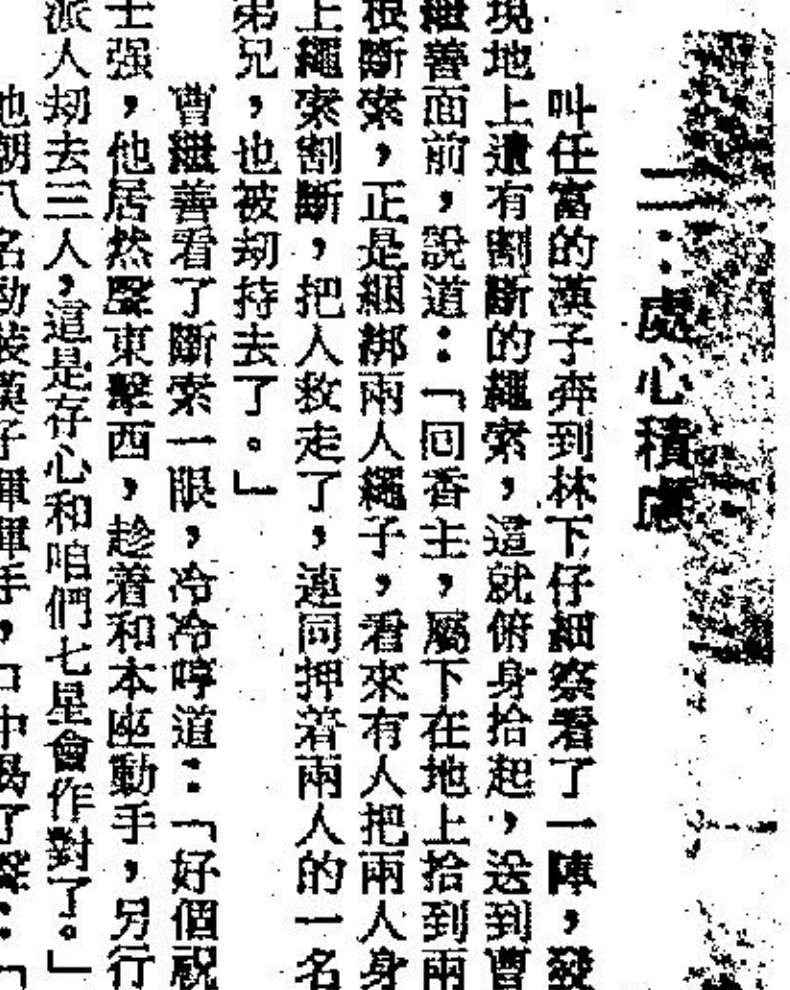 二：處心積慮
叫任富的漢子奔到林下仔細察看了一陣，發
現地上遺有割斷的繩索，這就俯身拾起，送到曹
繼善面前，說道：「回香主，屬下在地上拾到兩
根斷索，正是綑綁兩人繩子，看來有人把兩人身
上繩索割斷，把人救走了，連同押着兩人的一名
弟兄，也被刧持去了。」
曹繼善看了斷索一眼，冷冷哼道：「好個祝
士强，他居然聲東擊西，趁着和本座動手，另行
派人刧去三人，這是存心和咱們七星會作對了。」
他朝八名勁裝漢子揮揮手，口中喝了聲：「